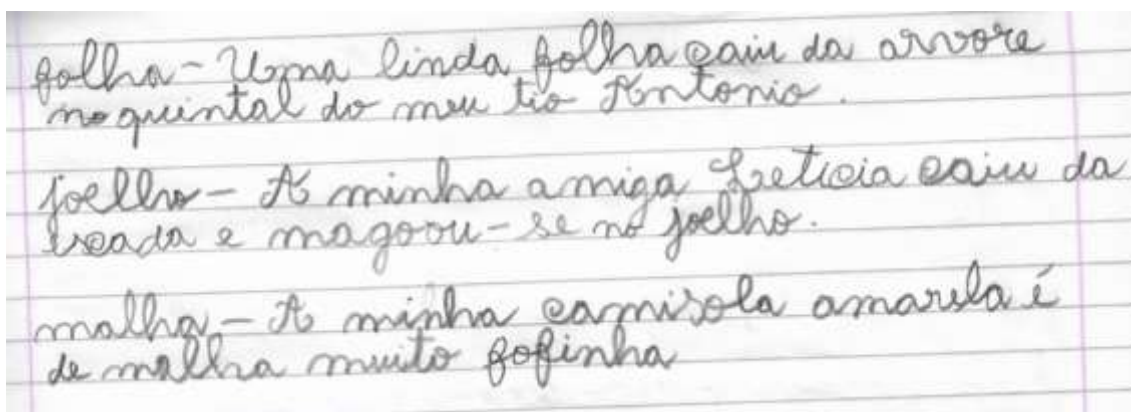 folha - Uma linda folha caiu da arvore
no quintal do meu tio Antonio.
joelho - A minha amiga Leticia caiu da
iscada e magoou-se no joelho.
malha - A minha camisola amarela é
de malha muito fofinha